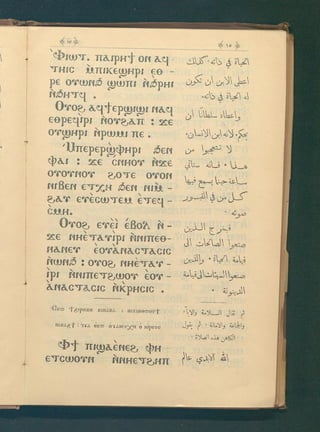 Ⲫⲓⲱⲧ. ⲡⲁⲓⲣⲏϯ ⲟⲛ ⲁϥ
ⲧⲏⲓⲥ ⲙ̀ⲡⲓⲕⲉϣⲏⲣⲓ ⲉⲑ -
ⲣⲉ ⲟⲩⲱⲛϧ ϣⲱⲡⲓ ⲛ̀ϧⲣⲏⲓ
ⲛ̀ϧⲏⲧϥ .
Ⲟⲩⲟϩ ⲁϥϯⲉⲣϣⲓϣⲓ ⲛⲁϥ
ⲉⲑⲣⲉϥⲓ̀ⲣⲓ ⲛ̀ⲟⲩϩⲁⲡ : ϫⲉ
ⲟⲩϣⲏⲣⲓ ⲛ̀ⲣⲱⲙⲓ ⲡⲉ .
Ⲙ̀ⲡⲉⲣⲉⲣϣ̀ⲫⲏⲣⲓ ϧⲉⲛ
ⲫⲁⲓ : ϫⲉ ⲥⲛⲏⲟⲩ ⲛ̀ϫⲉ
ⲟⲩⲟⲩⲛⲟⲩ ϩⲟⲧⲉ ⲟⲩⲟⲛ
ⲛⲓⲃⲉⲛ ⲉⲧⲭⲏ ϧⲉⲛ ⲛⲓⲙ̀ -
ϩⲁⲩ ⲉⲩⲉ̀ⲥⲱⲧⲉⲙ ⲉ̀ⲧⲉϥ -
ⲥⲙⲏ.
Ⲟⲩⲟϩ ⲉⲩⲉ̀ⲓ̀ ⲉ̀ⲃⲟⲗ ⲛ̀ -
ϫⲉ ⲛⲏⲉⲧⲁⲩⲓ̀ⲣⲓ ⲛ̀ⲛⲓⲡⲉⲑ -
ⲛⲁⲛⲉⲩ ⲉⲩⲁⲛⲁⲥⲧⲁⲥⲓⲥ
ⲛ̀ⲱⲛϧ : ⲟⲩⲟϩ ⲛⲏⲉⲧⲁⲩ -
ⲓ̀ⲣⲓ ⲛ̀ⲛⲓⲡⲉⲧϩⲱⲟⲩ ⲉ̀ⲟⲩ -
ⲁⲛⲁⲥⲧⲁⲥⲓⲥ ⲛ̀ⲕⲣⲏⲥⲓⲥ .
Ⲫϯ ⲡⲓϣⲁⲉ̀ⲛⲉϩ ⲫⲏ
ⲉⲧⲥⲱⲟⲩⲛ ⲛ̀ⲛⲏⲉⲧϩⲏⲡ
الحياة في ذاته. كذلك
اعطى الابن أن تكون
له الحياة في ذاته.
واعطاه سلطانًا أن
يحكم. لانه ابن الانسان.
لا تتعجبوا من
هذا. فانه ستأتي
ساعة حينما يسمع فيها
كل من في القبور
صوته.
فيخرج الذين
صنعوا الصالحات الى
قيامة الحياة. والذين
صنعوا السيئات الى قيامة
الدينونة.
الله الابدي عالم